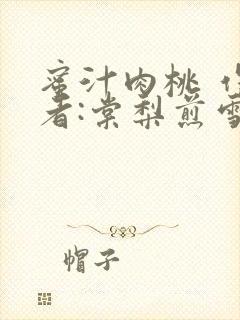 蜜汁肉桃 作
者:棠梨煎雪
帽子